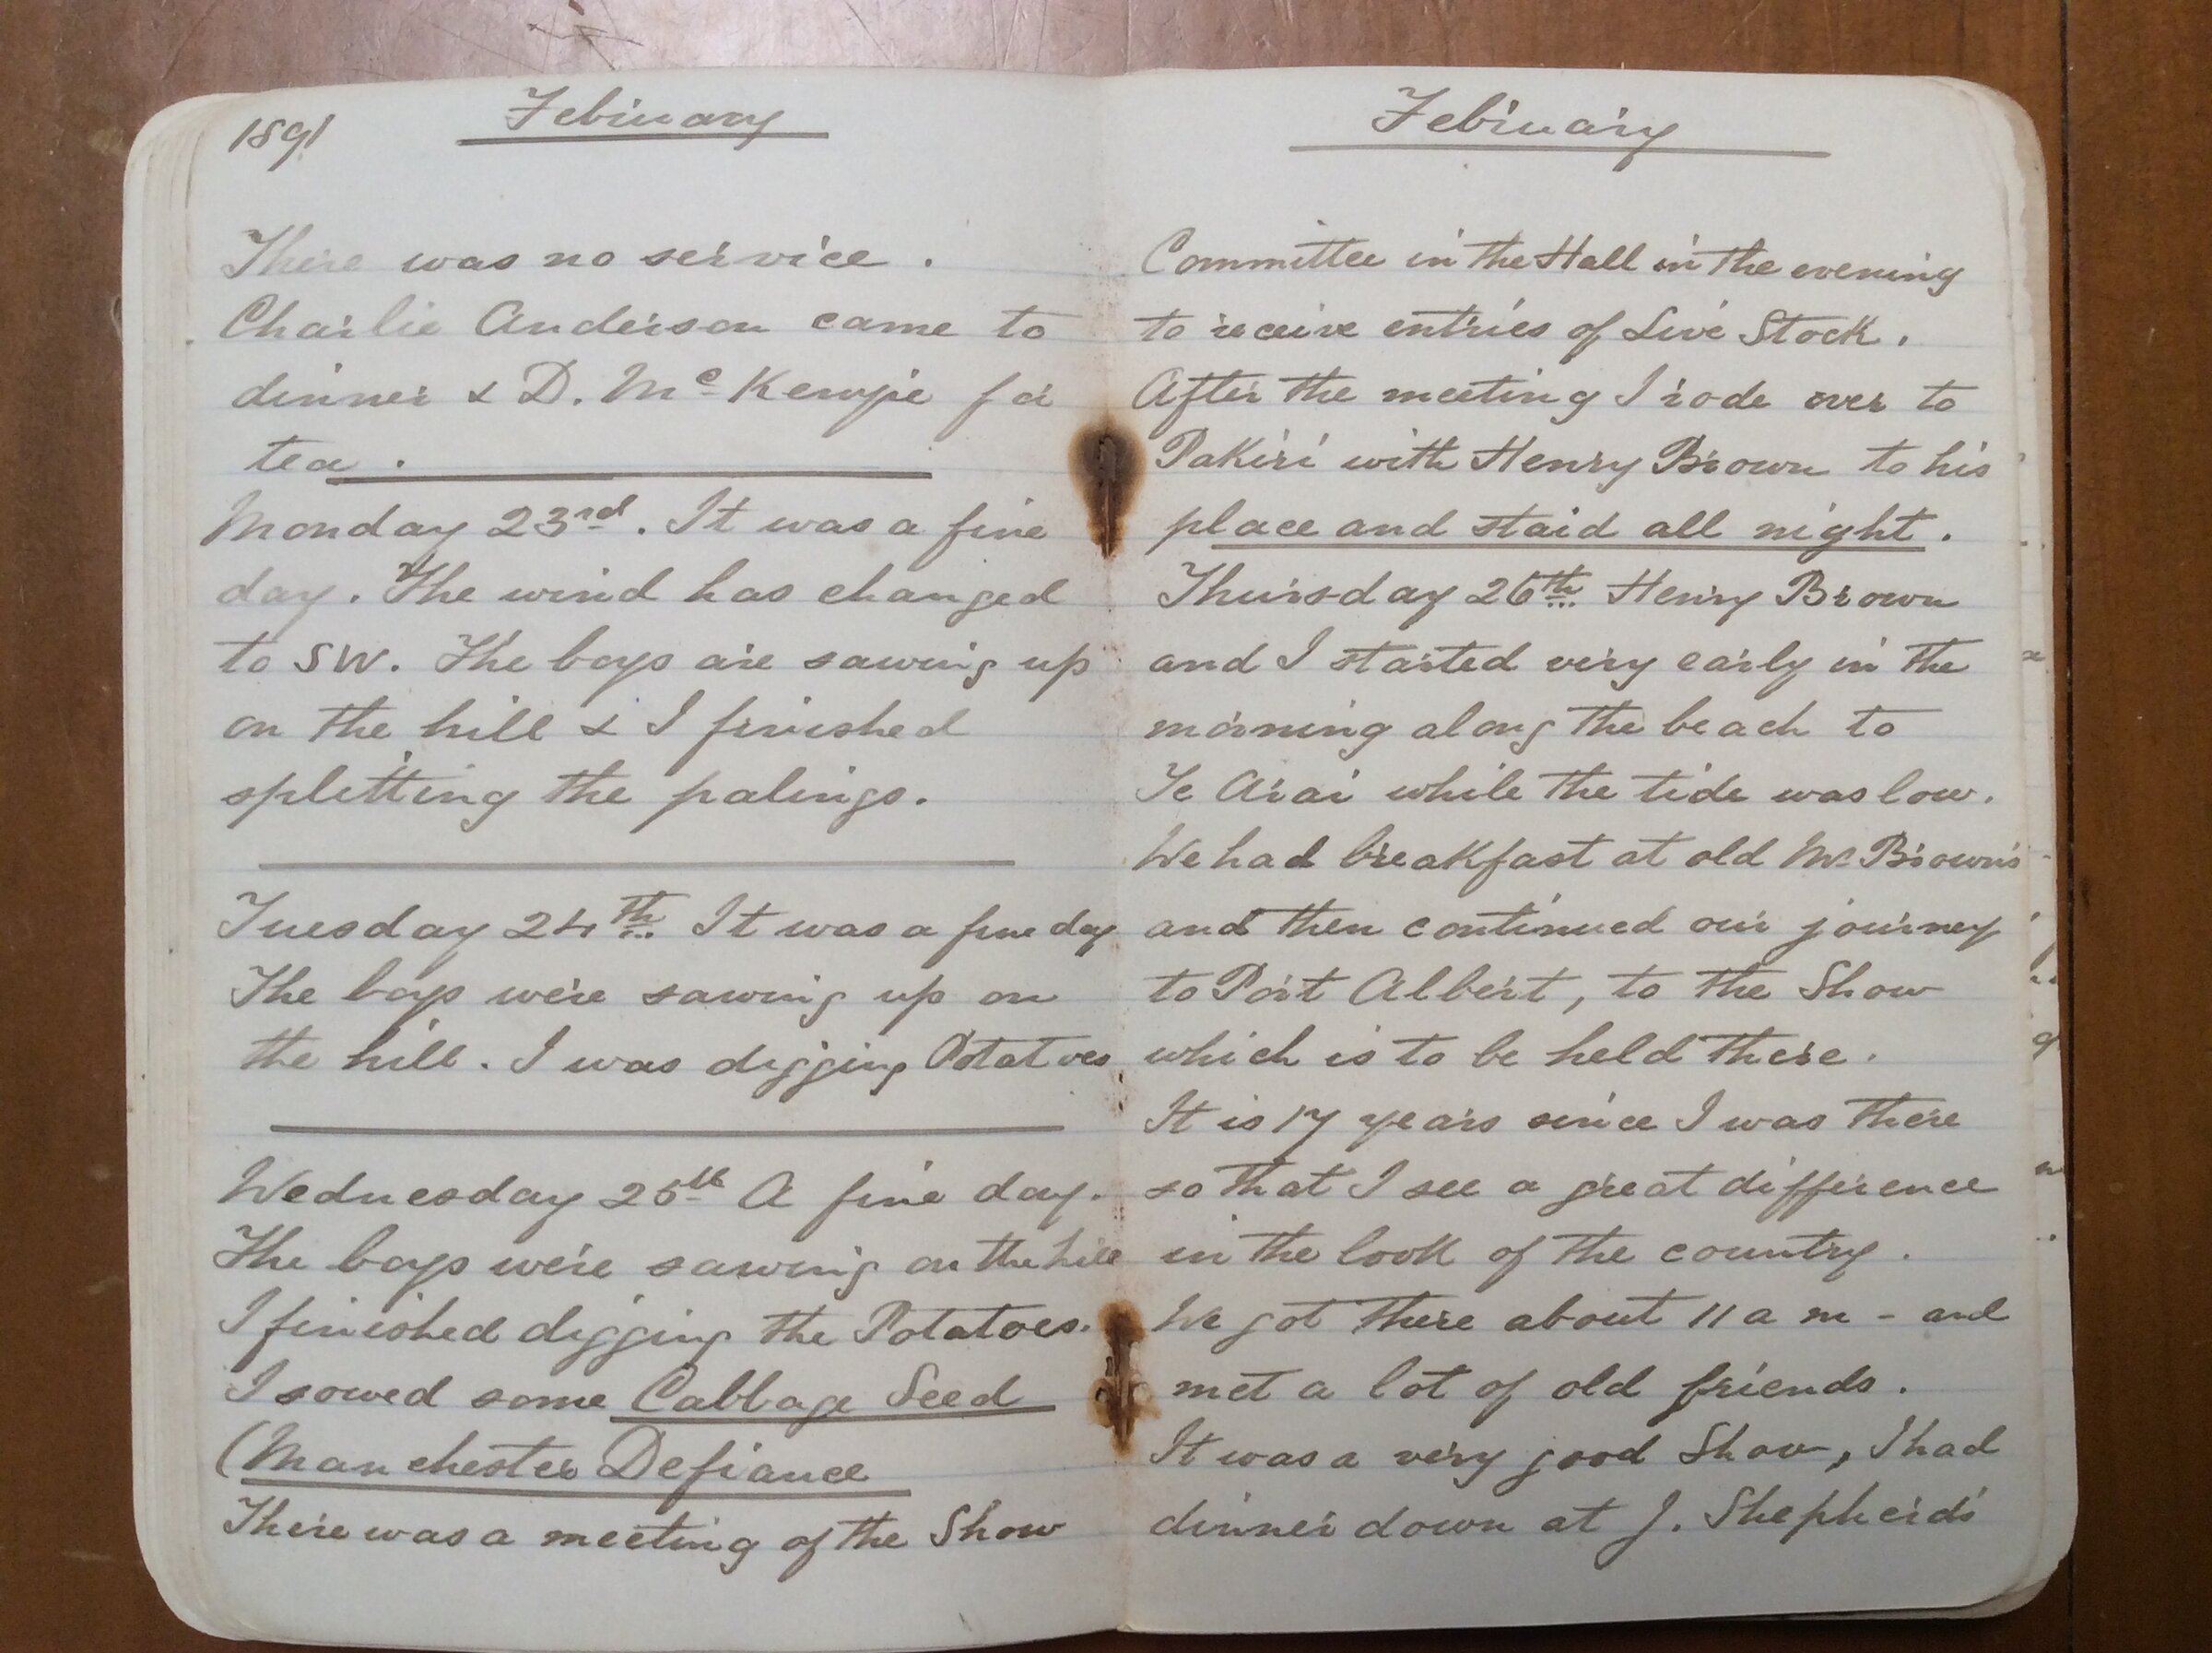 1891 February
There was no service.
Charlie Anderson came to
dinner & D. Mc Kenzie for
tea.
Monday 23rd. It was a fine
day. The wind has changed
to SW. The boys are sawing up
on the hill & I finished
splitting the palings.
Tuesday 24th It was a fine day
The boys were sawing up on
the hill. I was digging Potatoes
Wednesday 25th A fine day.
The boys were sawing on the hill
I finished digging the Potatoes.
I sowed some Cabbage Seed
(Manchester Defiance
There was a meeting of the Show
February
Committee in the Hall in the evening
to receive entries of Live Stock.
After the meeting I rode over to
Pakiri with Henry Brown to his
place and staid all night.
Thursday 26th Henry Brown
and I started very early in the
morning along the beach to
Te Arai while the tide was low.
We had breakfast at old Mr Brown's
and then continued our journey
to Port Albert, to the Show
which is to be held there.
It is 17 years since I was there
so that I see a great difference
in the look of the country.
We got there about 11 a m - and
met a lot of old friends.
It was a very good Show, I had
dinner down at J. Shepherds